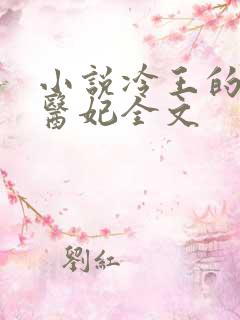 小說冷王的
醫妃全文
劉紅